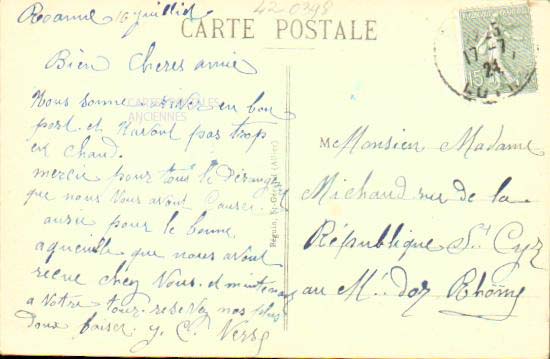 Roanne 16 Juillet
42 0398
CARTE POSTALE
Bien cheres amie
Nous sonne arivez en bon
port. et navont pas trop
eu chaud.
mercie pour tous le dérangez
que nous vous avont causer.
aussi pour le bonne
aqueuille que nous avont
recue chez vous. et maintenant
a votre tour. resevez nos plus
doux baiser. y. C. Verss
CARTES POSTALES
ANCIENNES
Béguin, St-Gérand (Allier)
15
17-7
24
M Monsieur Madame
Michaud rue de la
République St Cyr
au Mt dor Rhône